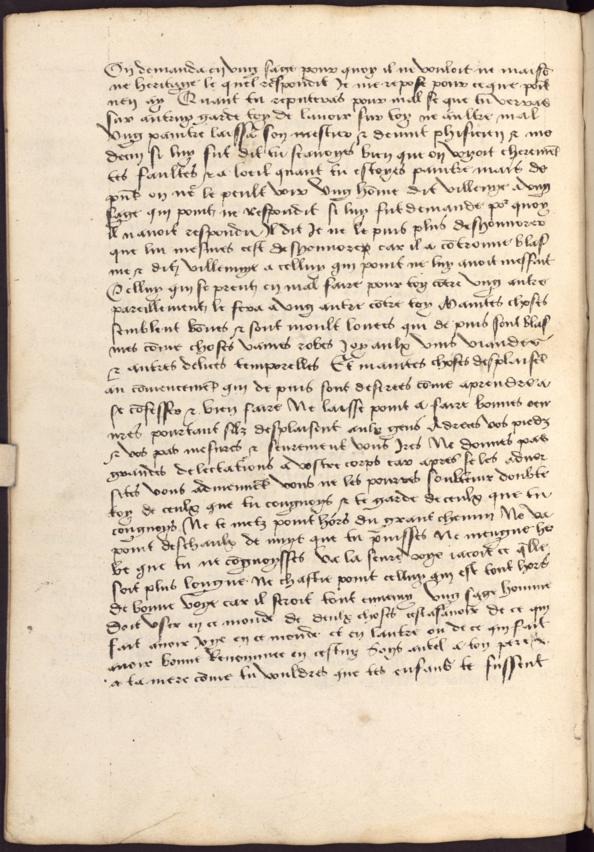 On demanda a ung sage pour quoy il ne vouloit ne maisõ
ne heritage le quel respondit Je me repose pour ce que poit
nen ay Quant tu reputeras pour mal se que tu verras
sur autruy garde toy de lavoir sur toy ne aultre mal
Ung paintre laissa son mestier & devint phisicien & me
decin si luy fut dit tu scavoyes bien que on veoit cleremēt
tes faultes & a loeil quant tu estoyes paintre mais de
pn̄t on ne le peult voir Ung hõme dit villenye a ung
sage qui point ne respondit si luy fut demande por quoy
il navoit respondu Il dit Je ne le puis plus deshonnorer
que luy mesmes cest deshonnore car il a cõtrouve blas
me & dit villennye a celluy qui point ne luy avoit meffait
Celluy qui se prent en mal faire pour toy cõtre ung autre
pareillement le fera a ung autre cõtre toy Maintes choses
semblent bõnes & sont moult louees qui de puis sont blas
mees cõme choses vaines robes Joyaulx vins viandes
& autres delices temporelles Et maintes choses desplaisēt
au cõmencemēt qui de puis sont desirees cõme aprendre a
se cõfesser & bien faire Ne laisse point a faire bonnes oeu
vres pourtant silz desplaisent aulx gens Adreces vos piedz
& vos pas mesures & seurement vous Ires Ne donnes pas
grandes delectations a vostre corps car apres se les adver
sites vous adviennēt vous ne les pourres soubtenir doubte
toy de ceulx que tu congnoys & te garde de ceulx que tu
congnoys Ne te metz point hors du grant chemin Ne va
point deschaulx de nuyt que tu puisses Ne mengue her
be que tu ne cõgnoysses Va la seure voye iacoit ce q̃lle
soit plus longue Ne chastie point celluy qui est tout hors
de bonne voye car il seroit tout ennemy Ung sage homme
doit user en ce monde de deulx choses cest asavoir de ce qui
fait avoir Joye en ce monde et en lautre ou de ce qui fait
avoir bonne Renommee en cestuy Soys autel a ton pere &
a ta mere cõme tu vouldres que tes enfans te fussent